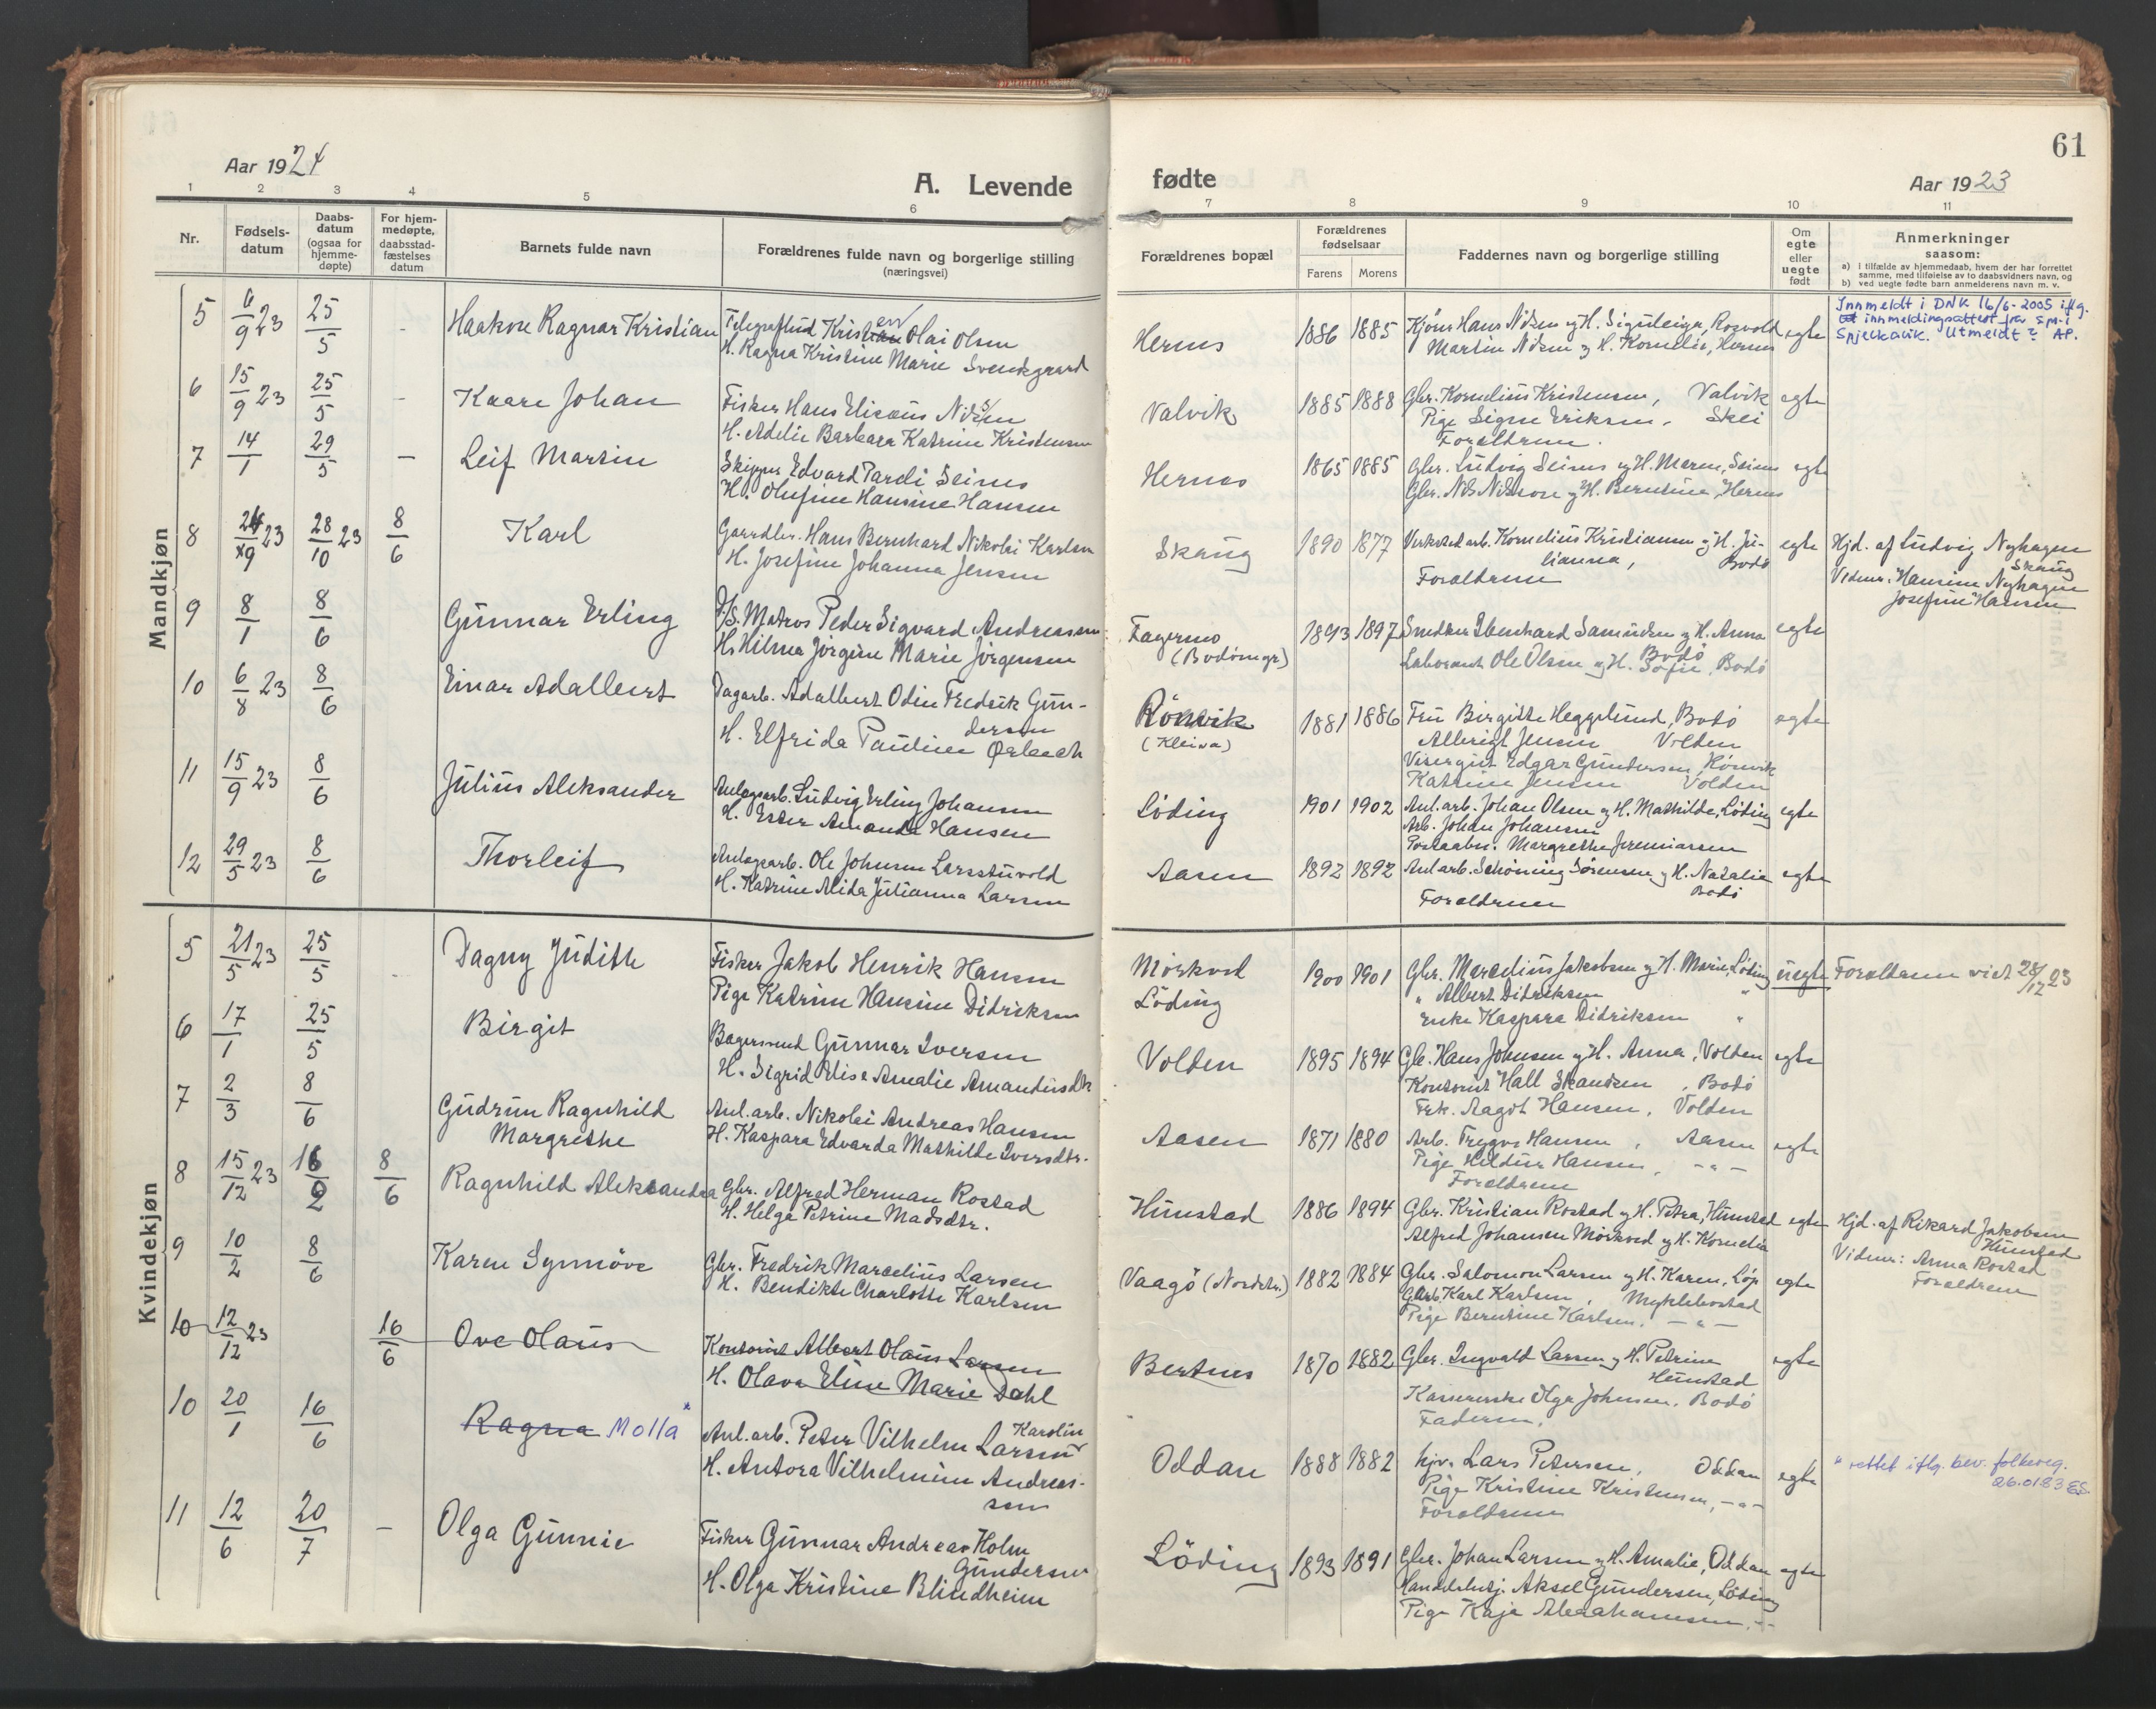 Aar 1924
A. Levende
1 2 3 4 5 6
Nr.
Fødsels-
datum
Daabs-
datum
(ogsaa for
hjemme-
døpte)
For hjem-
medøpte,
daabsstad-
fæstelses
datum
Barnets fulde navn
Forældrenes fulde navn og borgerlige stilling
(næringsvei)
Mandkjøn
5 6/9 23 25/5 - Haakon Ragnar Kristian
Olai Olsen
H. Ragna Kristine Marie Svendsgaard
6 15/9 23 25/5 - Kaare Johan
Fisker Hans Elisæus Nilsen
H. Adelie Barbara Katrine Kristensen
7 14/1 29/5 — Leif Martin
Skipper Edvard Pareli Seines
H. Olufine Hansine Hansen
8 23 28/10 23 8/6 Karl
Gaardbr. Hans Bernhard Nikolai Karlsen
H. Josefine Johanna Jensen
9 8/1 8/6 Gunnar Erling
Matros Peder Sigvard Andreassen
H. Hilma Jörgine Marie Jörgensen
10 6/8 23 8/6 Einar Adalbert
Dagarb. Adalbert Odin Fredrik Gun-
dersen
H. Elfrida Pauline
11 15/9 23 8/6 Julius Aleksander
Anlægsarb. Ludvig Erling Johansen
H. Ester Amanda Hansen
12 29/5 23 8/6 Thorleif
Anlægsarb. Ole Johnsen Larsstuvold
H. Katrine Alida Julianna Larsen
Kvindekjøn
5 21/5 23 25/5 - Dagny Judith
Fisker Jakob Henrik Hansen
Pige Katrine Hansine Didriksen
6 17/1 25/5 Birgit
Bagersvend Gunnar Iversen
H. Sigrid Elise Amalie Amandusdtr
7 2/3 8/6 Gudrun Ragnhild
Margrethe
Anl.arb. Nikolai Andreas Hansen
H. Kaspara Edvarda Mathilde Iversdtr.
8 15/12 23 16/2 8/6 Ragnhild Aleksandra
Gbr. Alfred Herman Rostad
H. Helga Petrine Madsdtr.
9 10/2 8/6 Karen Synnöve
Gbr. Fredrik Marcelius Larsen
H. Bendikte Charlotte Karlsen
10 12/12 23 16/6 Ove Olaus
Kontorist Albert Olaus Larsen
H. Olava Eline Marie Dahl
10 20/1 16/6 Ragna Molla *
Anl.arb. Peter Vilhelm Larsen
Karolin
H. Antora Vilhelmine Andreas-
sen
11 12/6 20/7 — Olga Gunnie
Fisker Gunnar Andreas Holm
Gundersen
H. Olga Kristine Blindheim
61
fødte
Aar 1923
7 8 9 10 11
Forældrenes bopæl
Forældrenes
fødselsaar
Farens Morens
Faddernes navn og borgerlige stilling
Om
egte
eller
uegte
født
Anmerkninger
saasom:
a) i tilfælde av hjemmedaab, hvem der har forrettet
samme, med tilføielse av to daabsvidners navn, og
b) ved uegte fødte barn anmelderens navn m. v.
Hernes 1886 1885 Hans Nilsen og H. Rosvold egte
Martin Nilsen og H. Kornelie, Hernes
Innmeldt i DNK 16/6-2005 iflg.
innmeldingsattest fra spr.i
Spjelkavik. Utmeldt? AP.
Valvik 1885 1888 Gbr. Kornelius Kristensen, Valvik egte
Pige Signe Eriksen, Skei
Forældrene.
Hernes 1865 1885 Gbr. Ludvig Seines og H. Maren, Seines egte
Gbr. Nils Nilsson og H. Berntine, Hernes
Skaug 1890 1877 Kornelius Kristiansen og H. Ju-
lianna, Bodö egte
Forældrene
Hjd. af Ludvig Nyhagen
Skaug
Vidner: Hansine Nyhagen
Josefine Hansen
Fagermo
(Bodömgr) 1893 1897 Snedker Samuelsen og H. Anna egte
Bodö
Laborant Ole Olsen og H. Sofie, Bodö
Rönvik
(Kleiva) 1881 1886 Fru Birgitte Heggelund, Bodö egte
Albrigt Jensen Volden
Visergut Edgar Gundersen, Rönvik
Katrine Jensen Volden
Löding 1901 1902 Anl.arb. Johan Olsen og H. Mathilde, Löding egte
Arb. Johan Johansen
Margrethe Jeremiassen
Aasen 1892 1892 Anl.arb. Schöning Sörensen og H. Natalie egte
Bodö
Forældrene
Mörkved
Löding 1900 1901 Gbr. Marcelius Jakobsen og H. Marie, Löding uegte
" Albert Didriksen "
Enke Kaspara Didriksen "
Forældrene viet 28/12 23
Volden 1895 1894 Gbr. Hans Johnsen og H. Anna, Volden egte
Kontorist Hall , Bodö
Frk. Aagot Hansen, Volden
Aasen 1871 1880 Arb. Trygve Hansen, Aasen egte
Pige Hildur Hansen, -"-
Forældrene
Hunstad 1886 1894 Gbr. Kristian Rostad og H. Petra, Hunstad egte
Alfred Johansen Mörkved og H. Kornelia
Hjd. af Rikard Jakobsen
Hunstad
Vidner: Anna Rostad
Forældrene
Vaagö (Nordstr.) 1882 1884 Gbr. Salomon Larsen og H. Karen, Löp egte
Karl Karlsen, Myklebostad
Pige Berntine Karlsen. -"-
Bertnes 1870 1882 Gbr. Ingvald Larsen og H. Petrine egte
Hunstad
Kassererske Olga Johnsen, Bodö
Faderen.
Oddan 1888 1882 hjv. Lars Petersen, Oddan egte
Pige Kristine Kristensen, -"-
Forældrene
* rettet iflg. bev. folkereg.
26.01.83 ES.
Löding 1893 1891 Gbr. Johan Larsen og H. Amalie, Oddan egte
Handelsbtj. Aksel Gundersen, Löding
Pige Kaja Abrahamsen, -"-